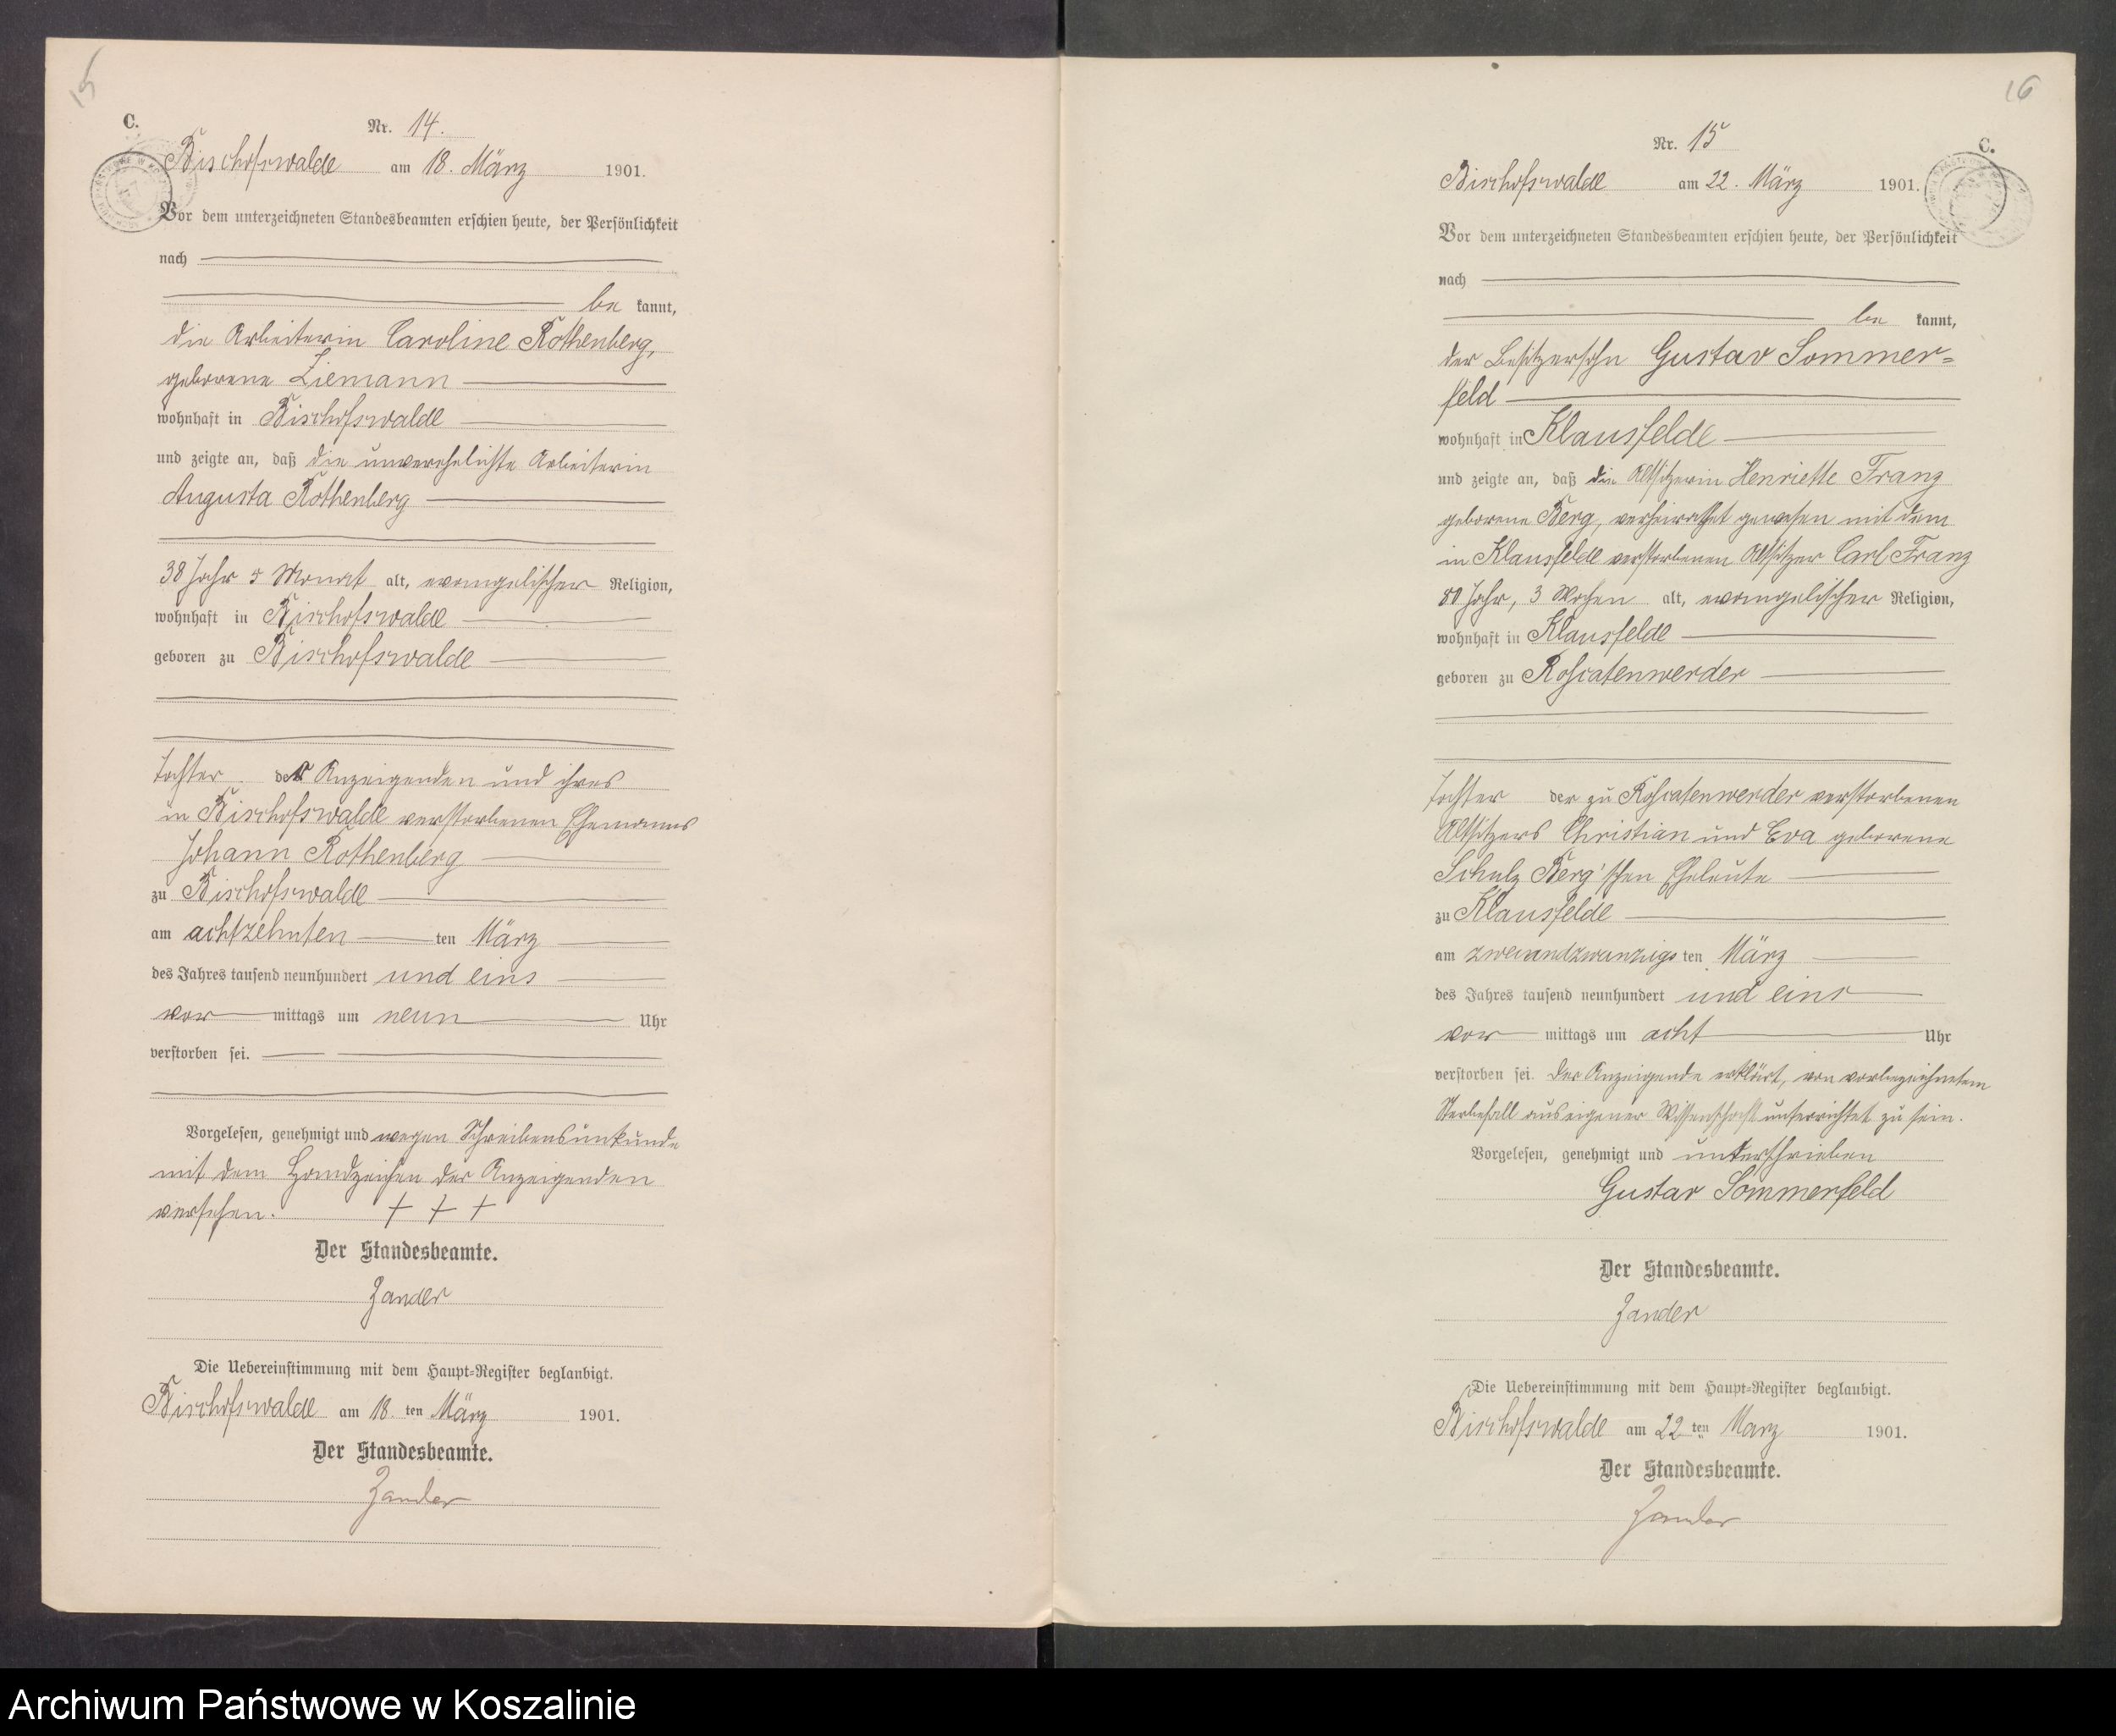 15
C.
Nr. 14.
Bischofswalde am 18. März 1901.
Vor dem unterzeichneten Standesbeamten erschien heute, der Persönlichkeit
nach
be kannt,
die Arbeiterin Caroline Rothenberg,
geborene Ziemann
wohnhaft in Bischofswalde
und zeigte an, daß die unverehelichte Arbeiterin
Augusta Rothenberg
38 Jahr 5 Monat alt, evangelischer Religion,
wohnhaft in Bischofswalde
geboren zu Bischofswalde
Tochter der Anzeigenden und ihres
in Bischofswalde verstorbenen Ehemanns
Johann Rothenberg
zu Bischofswalde
am achtzehnten ten März
des Jahres tausend neunhundert und eins
vor mittags um neun Uhr
verstorben sei.
Vorgelesen, genehmigt und wegen Schreibensunkunde
mit dem Handzeichen der Anzeigenden
versehen. + + +
Der Standesbeamte.
Zander
Die Uebereinstimmung mit dem Haupt-Register beglaubigt.
Bischofswalde am 18. ten März 1901.
Der Standesbeamte.
Zander
16
C.
Nr. 15
Bischofswalde am 22. März 1901.
Vor dem unterzeichneten Standesbeamten erschien heute, der Persönlichkeit
nach
be kannt,
der Besitzersohn Gustav Sommer=
feld
wohnhaft in Klausfelde
und zeigte an, daß die Altsitzerin Henriette Franz
geborene Berg, verheirathet gewesen mit dem
in Klausfelde verstorbenen Altsitzer Carl Franz
80 Jahr, 3 Wochen alt, evangelischer Religion,
wohnhaft in Klausfelde
geboren zu Rosciatenwerder
Tochter der zu Rosciatenwerder verstorbenen
Altsitzers Christian und Eva geborene
Schulz Berg'schen Eheleute
zu Klausfelde
am zweiundzwanzigs ten März
des Jahres tausend neunhundert und eins
vor mittags um acht Uhr
verstorben sei. Der Anzeigende erklärt, von vorbezeichnetem
Sterbefall aus eigener Wissenschaft unterrichtet zu sein.
Vorgelesen, genehmigt und unterschrieben
Gustav Sommerfeld
Der Standesbeamte.
Zander
Die Uebereinstimmung mit dem Haupt-Register beglaubigt.
Bischofswalde am 22 ten März 1901.
Der Standesbeamte.
Zander
Archiwum Państwowe w Koszalinie